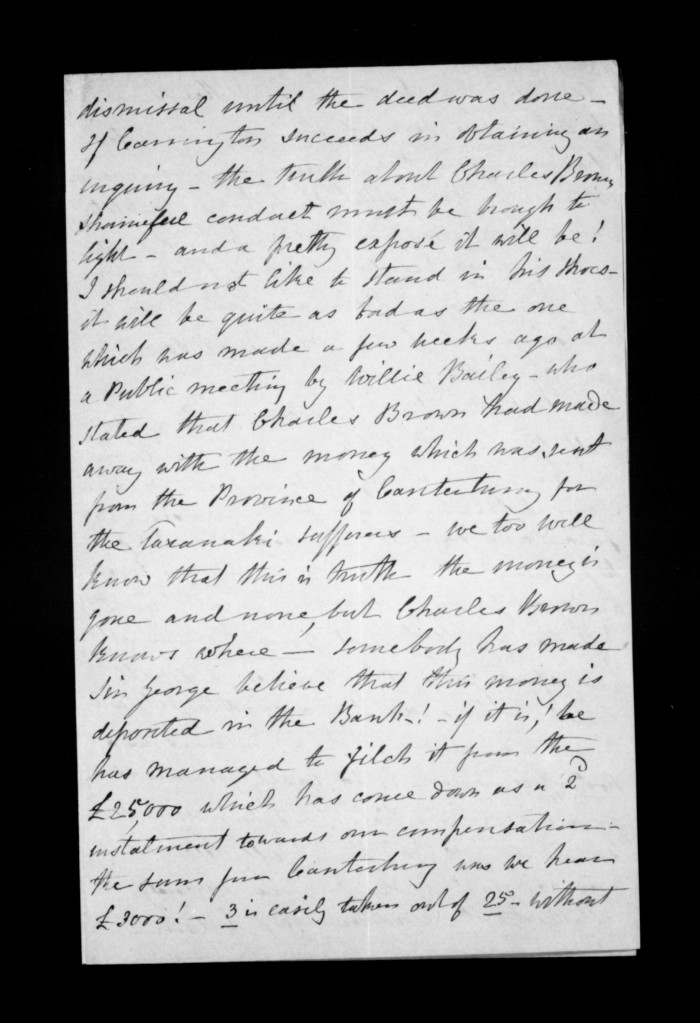 dismissal until the deed was done –
If Carrington succeeds in obtaining an
inquiry – the truth about Charles Browns
shameful conduct must be brough to
light – and a pretty exposé it will be!
I should not like to stand in his shoes –
it will be quite as bad as the one
which was made a few weeks ago at
a Public meeting by Willie Bailey – who
stated that Charles Brown had made
away with the money which was sent
from the Province of Canterbury for
the Taranaki sufferers – we too well
know that this is truth the money is
gone and none, but Charles Brown
knows where – somebody has made
Sir George believe that this money is
deposited in the Bank! – if it is, he
has managed to filch it from the
£25,000 which has come down as a 2d
instalment towards our compensation –
the sum from Canterbury was we hear
£3000! – 3 is easily taken out of 25 – without